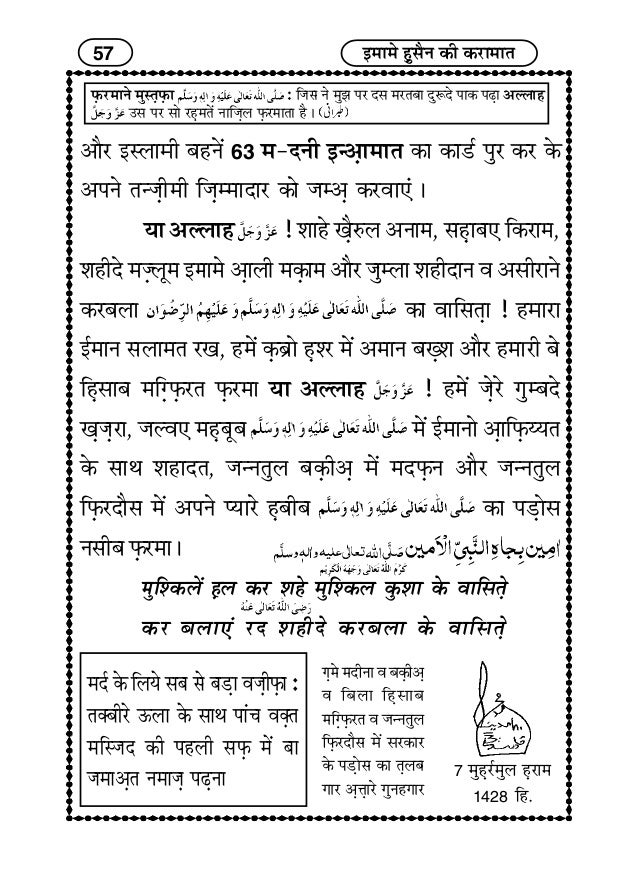 57
इमामे हुसैन की करामात
फ़रमाने मुस्त़फ़ा صَلَّى اللهُ تَعَالٰى عَلَيْهِ وَ اٰلِهٖ وَسَلَّم : जिस ने मुझ पर दस मरतबा दुरूदे पाक पढ़ा अल्लाह
عَزَّ وَجَلَّ उस पर सो रह़मतें नाज़िल फ़रमाता है । (طبرانی)
और इस्लामी बहनें 63 म-दनी इन्आ़मात का कार्ड पुर कर के
अपने तन्ज़ीमी ज़िम्मादार को जम्अ़ करवाएं ।
या अल्लाह عَزَّ وَجَلَّ ! शाहे ख़ैरुल अनाम, सह़ाबए किराम,
शहीदे मज़्लूम इमामे आ़ली मक़ाम और जुम्ला शहीदान व असीराने
करबला صَلَّى اللهُ تَعَالٰى عَلَيْهِ وَ اٰلِهٖ وَسَلَّم وَ عَلَيْهِمُ الرِّضْوَان का वासित़ा ! हमारा
ईमान सलामत रख, हमें क़ब्रो ह़श्र में अमान बख़्श और हमारी बे
ह़िसाब मग़्फ़िरत फ़रमा या अल्लाह عَزَّ وَجَلَّ ! हमें ज़ेरे गुम्बदे
ख़ज़रा, जल्वए मह़बूब صَلَّى اللهُ تَعَالٰى عَلَيْهِ وَ اٰلِهٖ وَسَلَّم में ईमानो आ़फ़िय्यत
के साथ शहादत, जन्नतुल बक़ीअ़ में मदफ़न और जन्नतुल
फ़िरदौस में अपने प्यारे ह़बीब صَلَّى اللهُ تَعَالٰى عَلَيْهِ وَ اٰلِهٖ وَسَلَّم का पड़ोस
नसीब फ़रमा । اٰمِين بِجَاهِ النَّبِيِّ الْاَمين صَلَّى الله تعالى عليه واله وسلَّم
كَرَّمَ اللهُ تَعَالٰى وَجْهَهُ الْكَرِيْم
मुश्किलें ह़ल कर शहे मुश्किल कुशा के वासित़े
رَضِىَ اللهُ تَعَالٰى عَنْهُ
कर बलाएं रद शहीदे करबला के वासित़े
मर्द के लिये सब से बड़ा वज़ीफ़ा :
तक्बीरे ऊला के साथ पांच वक़्त
मस्जिद की पहली सफ़ में बा
जमाअ़त नमाज़ पढ़ना
ग़मे मदीना व बक़ीअ़
व बिला ह़िसाब
मग़्फ़िरत व जन्नतुल
फ़िरदौस में सरकार
के पड़ोस का त़लब
गार अ़त्त़ारे गुनहगार
7 मुह़र्रमुल ह़राम
1428 हि.